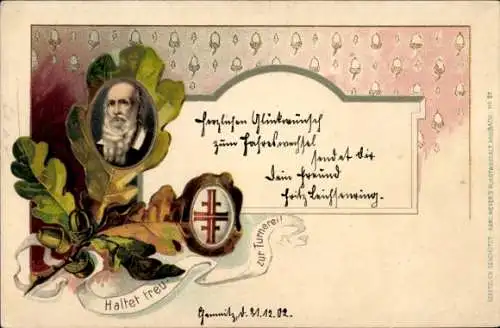 Herzlichen Glückwunsch
zum Jahreswechsel
sendet Dir
Dein Freund
Fritz Leichsenring.
Haltet treu
zur Turnerei!
Chemnitz, d. 31.12.02.
GESETZLICH GESCHÜTZT